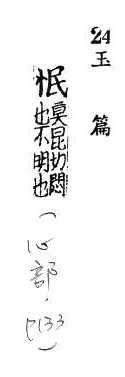 24 玉篇
怋 莫昆切悶
也不明也
(心部・P133)